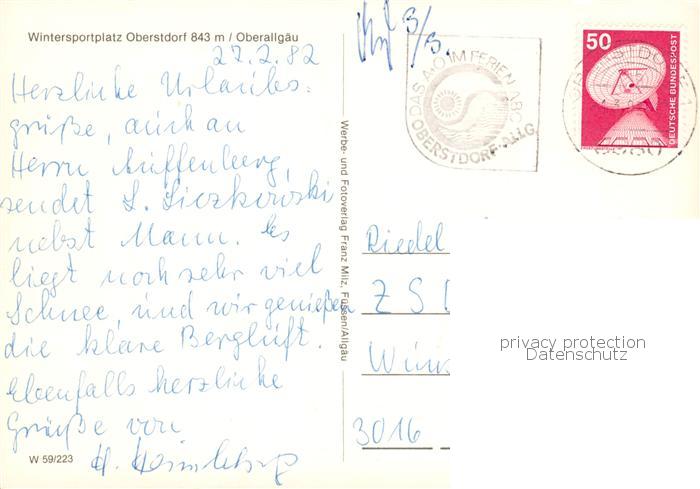 Wintersportplatz Oberstdorf 843 m / Oberallgäu
27.2.82
Herzliche Urlaubs-
grüße, auch an
Herrn Auffenberg,
sendet L. Liczkowski
nebst Mann. Es
liegt noch sehr viel
Schnee, und wir genießen
die klare Bergluft.
Ebenfalls herzliche
Grüße von
W 59/223
Werbe- und Fotoverlag Franz Milz, Füssen/Allgäu
3/3.
DAS A-O IM FERIEN-ABC
OBERSTDORF-ALLG.
50
DEUTSCHE BUNDESPOST
Riedel
Z S
3016
privacy protection
Datenschutz